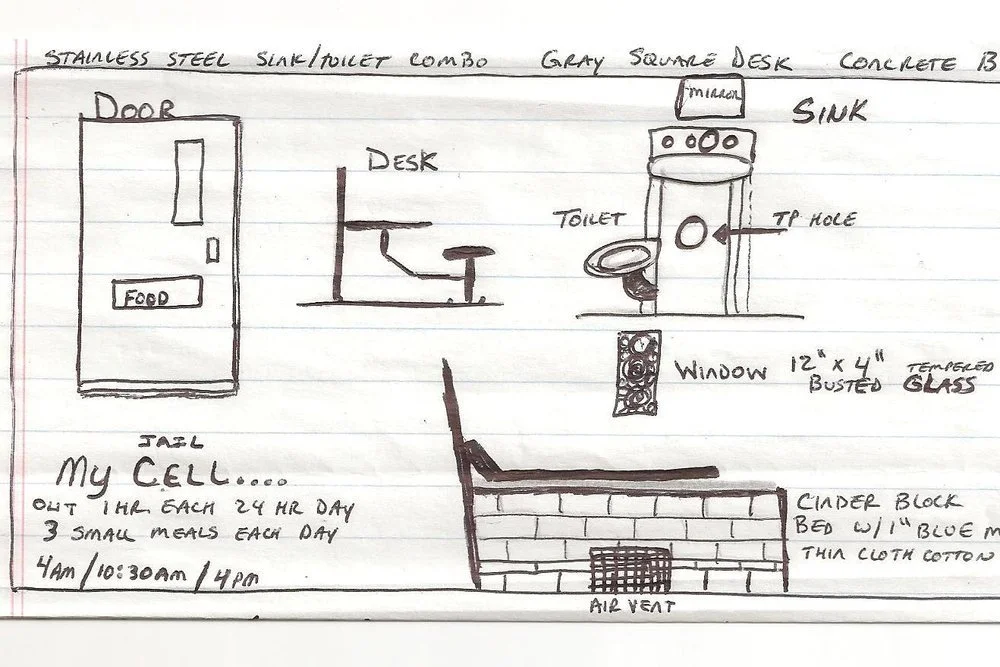 STAINLESS STEEL SINK/TOILET COMBO GRAY SQUARE DESK CONCRETE B
DOOR
MIRROR
SINK
DESK
TOILET
TP HOLE
FOOD
WINDOW 12" x 4" TEMPERED
BUSTED GLASS
JAIL
MY CELL....
OUT 1 HR. EACH 24 HR DAY
3 SMALL MEALS EACH DAY
4AM/10:30AM/4PM
CINDER BLOCK
BED W/1" BLUE M
THIN CLOTH COTTON
AIR VENT